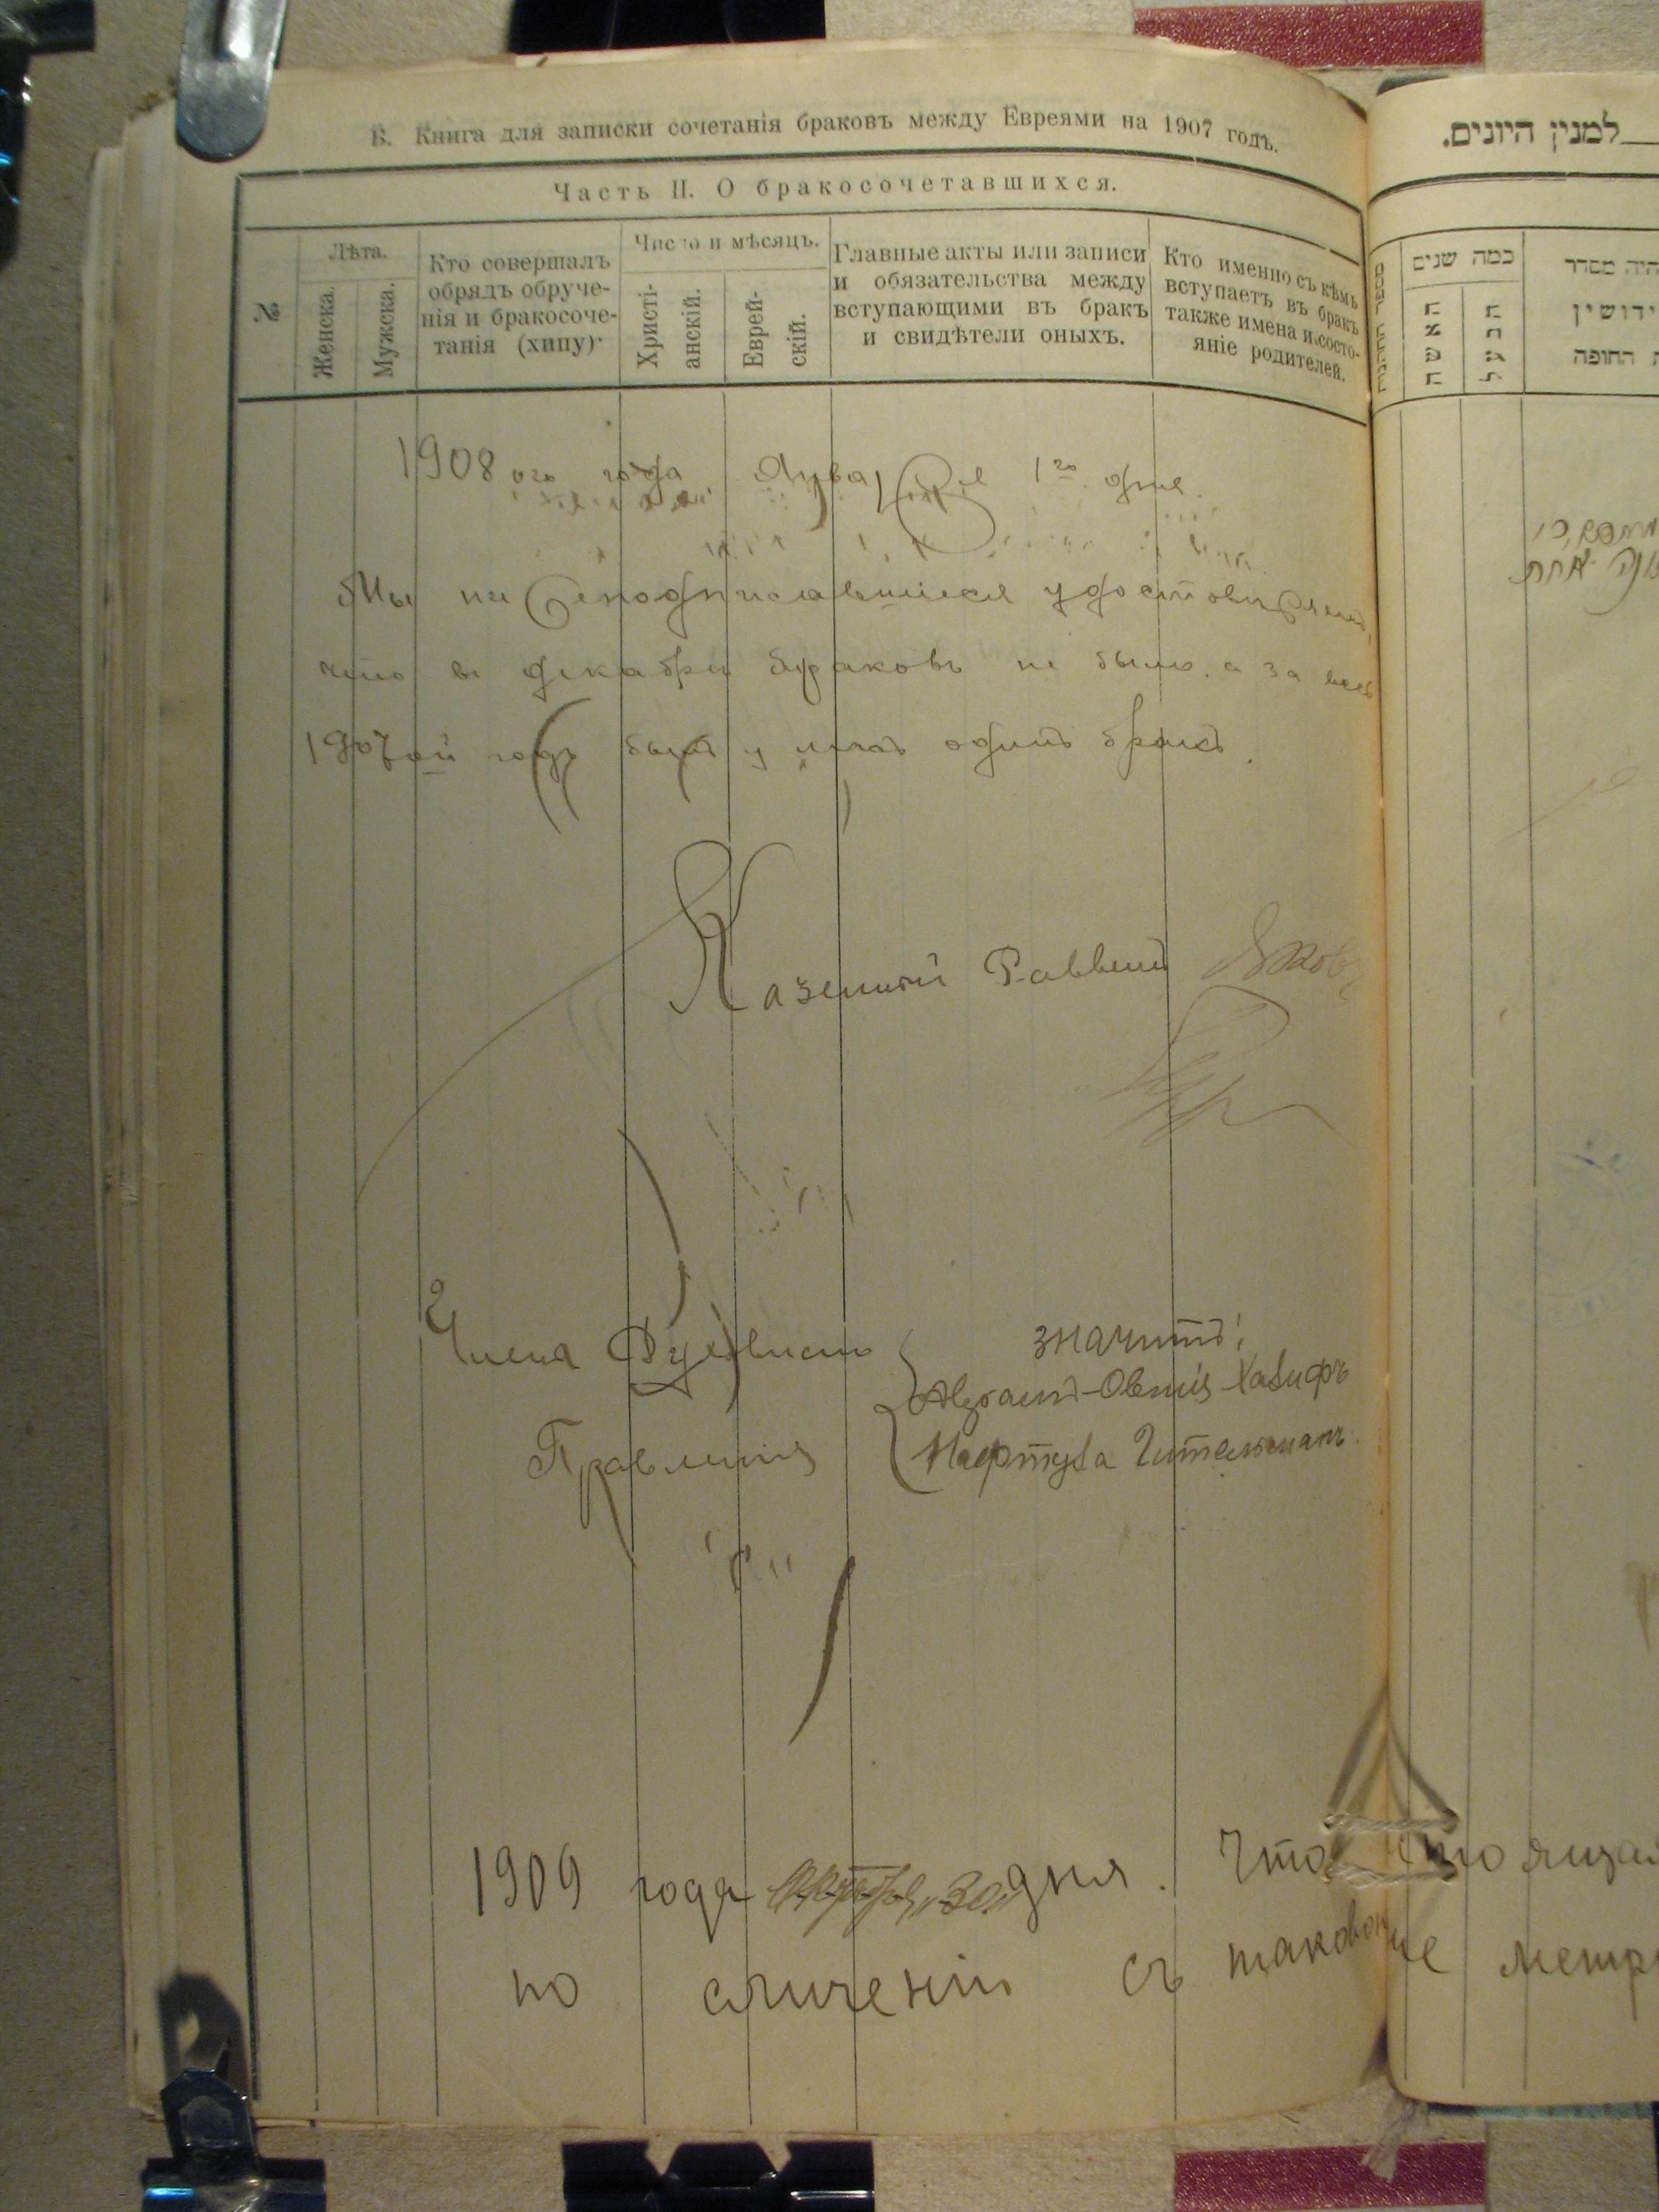 Б. Книга для записки сочетанія браковъ между Евреями на 1907 годъ.
Часть II. О бракосочетавшихся.
№
Лѣта.
Женска.
Мужска.
Кто совершалъ
обрядъ обруче-
нія и бракосоче-
танія (хипу)·
Число и мѣсяцъ.
Христі-
анскій.
Еврей-
скій.
Главные акты или записи
и обязательства между
вступающими въ бракъ
и свидѣтели оныхъ.
Кто именно съ кѣмъ
вступаетъ въ бракъ
также имена и состо-
яніе родителей.
1908 ого года Января 1го дня.
Мы нижеподписавшіеся удостовѣряемъ,
что въ декабрѣ браковъ не было, а за весь
1907ой годъ былъ у насъ одинъ бракъ.
Казенный Раввинъ
Члены Духовнаго
Правленія
значитъ:
Абрамъ-Овшія Хазифъ
1909 года 30 дня. Что
по сличеніи съ таковою же метри
למנין היונים.
כמה שנים
האשה
הבעל
היה מסדר
ידושין
החופה